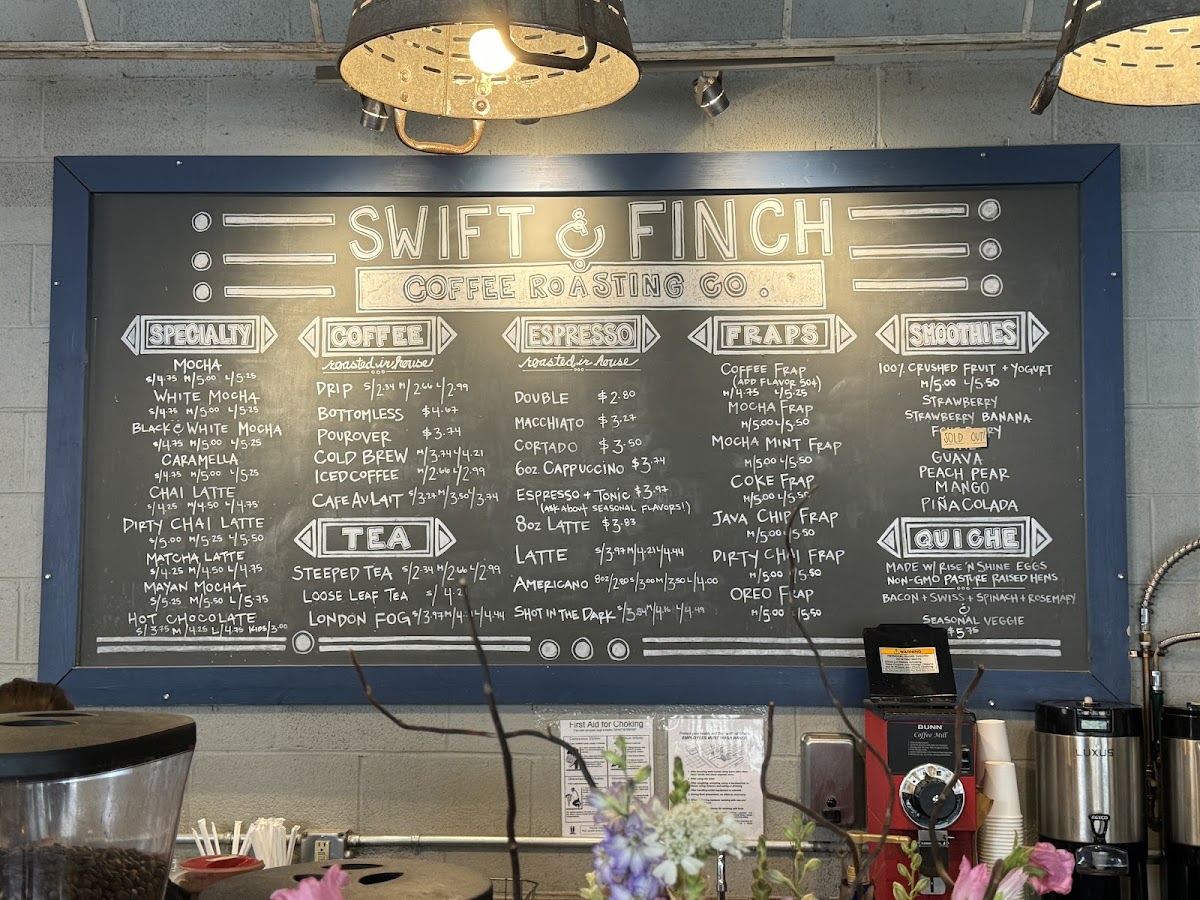 SWIFT & FINCH
COFFEE ROASTING CO.
SPECIALTY
MOCHA
S/4.75 M/5.00 L/5.25
WHITE MOCHA
S/4.75 M/5.00 L/5.25
BLACK & WHITE MOCHA
S/4.75 M/5.00 L/5.25
CARAMELLA
S/4.75 M/5.00 L/5.25
CHAI LATTE
S/4.25 M/4.50 L/4.75
DIRTY CHAI LATTE
S/5.00 M/5.25 L/5.50
MATCHA LATTE
S/4.25 M/4.50 L/4.75
MAYAN MOCHA
S/5.25 M/5.50 L/5.75
HOT CHOCOLATE
S/3.75 M/4.25 L/4.75 KIDS/3.00
COFFEE
roasted in house
DRIP S/2.34 M/2.66 L/2.99
BOTTOMLESS $4.67
POUROVER $3.74
COLD BREW M/3.74 L/4.21
ICED COFFEE M/2.66 L/2.99
CAFE AU LAIT S/3.27 M/3.50 L/3.74
TEA
STEEPED TEA S/2.34 M/2.66 L/2.99
LOOSE LEAF TEA S/
LONDON FOG S/3.97 M/4.21 L/4.44
ESPRESSO
roasted in house
DOUBLE $2.80
MACCHIATO $3.27
CORTADO $3.50
6OZ. CAPPUCCINO $3.74
ESPRESSO + TONIC $3.97
(ASK ABOUT SEASONAL FLAVORS!)
8OZ LATTE $3.83
LATTE S/3.97 M/4.21 L/4.44
AMERICANO 8OZ/2.80 S/3.00 M/3.50 L/4.00
SHOT IN THE DARK S/3.84 M/4.16 L/4.49
FRAPS
COFFEE FRAP
(ADD FLAVOR 50¢)
M/4.75 L/5.25
MOCHA FRAP
M/5.00 L/5.50
MOCHA MINT FRAP
M/5.00 L/5.50
COKE FRAP
M/5.00 L/5.50
JAVA CHIP FRAP
M/5.00 L/5.50
DIRTY CHAI FRAP
M/5.00 L/5.50
OREO FRAP
M/5.00 L/5.50
SMOOTHIES
100% CRUSHED FRUIT + YOGURT
M/5.00 L/5.50
STRAWBERRY
STRAWBERRY BANANA
SOLD OUT!
GUAVA
PEACH PEAR
MANGO
PIÑA COLADA
QUICHE
MADE W/ RISE 'N SHINE EGGS
NON-GMO PASTURE RAISED HENS
BACON + SWISS + SPINACH + ROSEMARY
&
SEASONAL VEGGIE
$5.75
WARNING
First Aid for Choking
EMPLOYEES MUST WASH HANDS
BUNN
Coffee Mill
LUXUS
FETCO